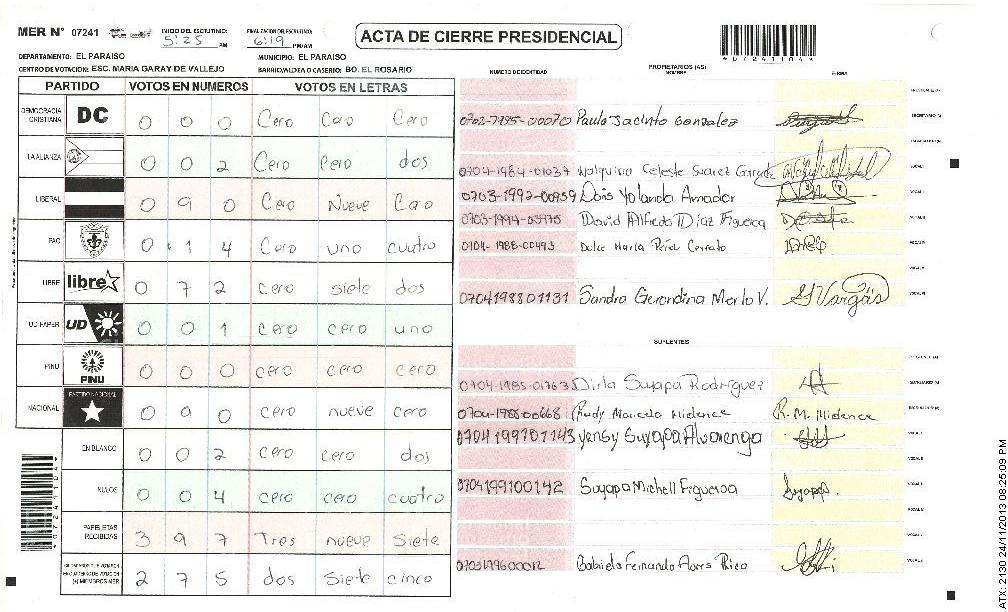 MER N° 07241 INICIO DEL ESCRUTINIO: 5:25 PM FINALIZACION DEL ESCRUTINIO: 6:19 PM/AM ACTA DE CIERRE PRESIDENCIAL
DEPARTAMENTO: EL PARAISO MUNICIPIO: EL PARAISO
CENTRO DE VOTACION: ESC. MARIA GARAY DE VALLEJO BARRIO/ALDEA O CASERIO: BO. EL ROSARIO
PARTIDO VOTOS EN NUMEROS VOTOS EN LETRAS
DEMOCRACIA CRISTIANA DC 0 0 0 Cero Cero Cero
LA ALIANZA 0 0 2 Cero Cero dos
LIBERAL 0 9 0 Cero Nueve Cero
PAC 0 1 4 Cero uno cuatro
LIBRE libre 0 7 2 cero siete dos
UD-FAPER UD 0 0 1 cero cero uno
PINU PINU 0 0 0 cero cero cero
NACIONAL PARTIDO NACIONAL 0 9 0 cero nueve cero
EN BLANCO 0 0 2 cero cero dos
NULOS 0 0 4 cero cero cuatro
PAPELETAS RECIBIDAS 3 9 7 Tres nueve Siete
2 7 5 dos Siete cinco
NUMERO DE IDENTIDAD PROPIETARIOS (AS) NOMBRE FIRMA
Paula Jacinto Gonzalez
0704-1984-01037 Walquiria Celeste Suarez
0703-1992-00959 Doris Yolanda Amador
David Alfredo Diaz Figueroa
0704-1988-00493 Dulce Maria Perez Cerrato
0704198801131 Sandra Gerardina Merlo V. S Vargas
SUPLENTES
0704-1985-01763 Dirla Suyapa Rodriguez
0704-1988-00668 Rudy Marcelo Midence R.M. Midence
0704199701143 Yensy Suyapa Alvarenga
0704199100142 Suyapa Michell Figueroa Suyapa.
Gabriela Fernanda Flores
ATX: 2130 24/11/2013 08:25:09 PM